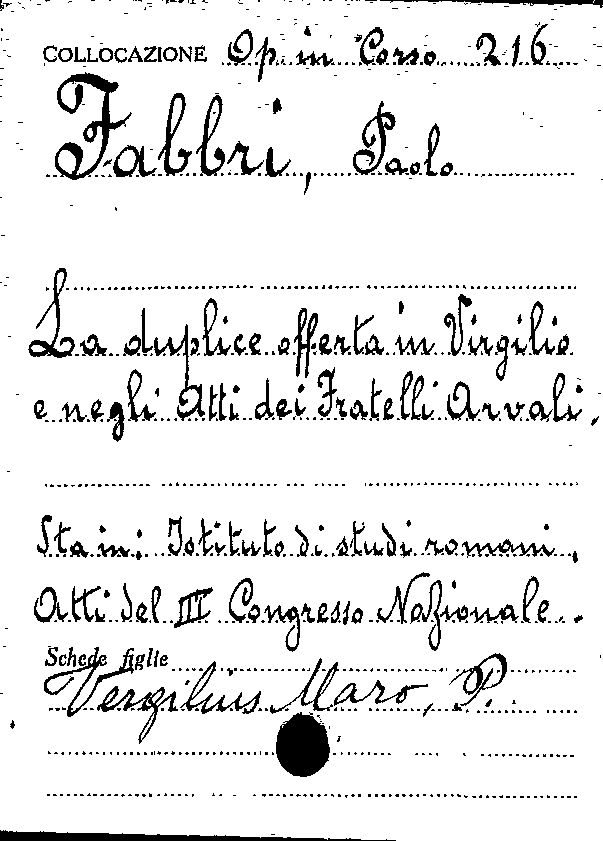 COLLOCAZIONE Op. in Corso 216
Fabbri, Paolo
La duplice offerta in Virgilio
e negli Atti dei Fratelli Arvali.
Sta in: Istituto di studi romani.
Atti del III Congresso Nazionale..
Schede figlie
Vergilius Maro, P.